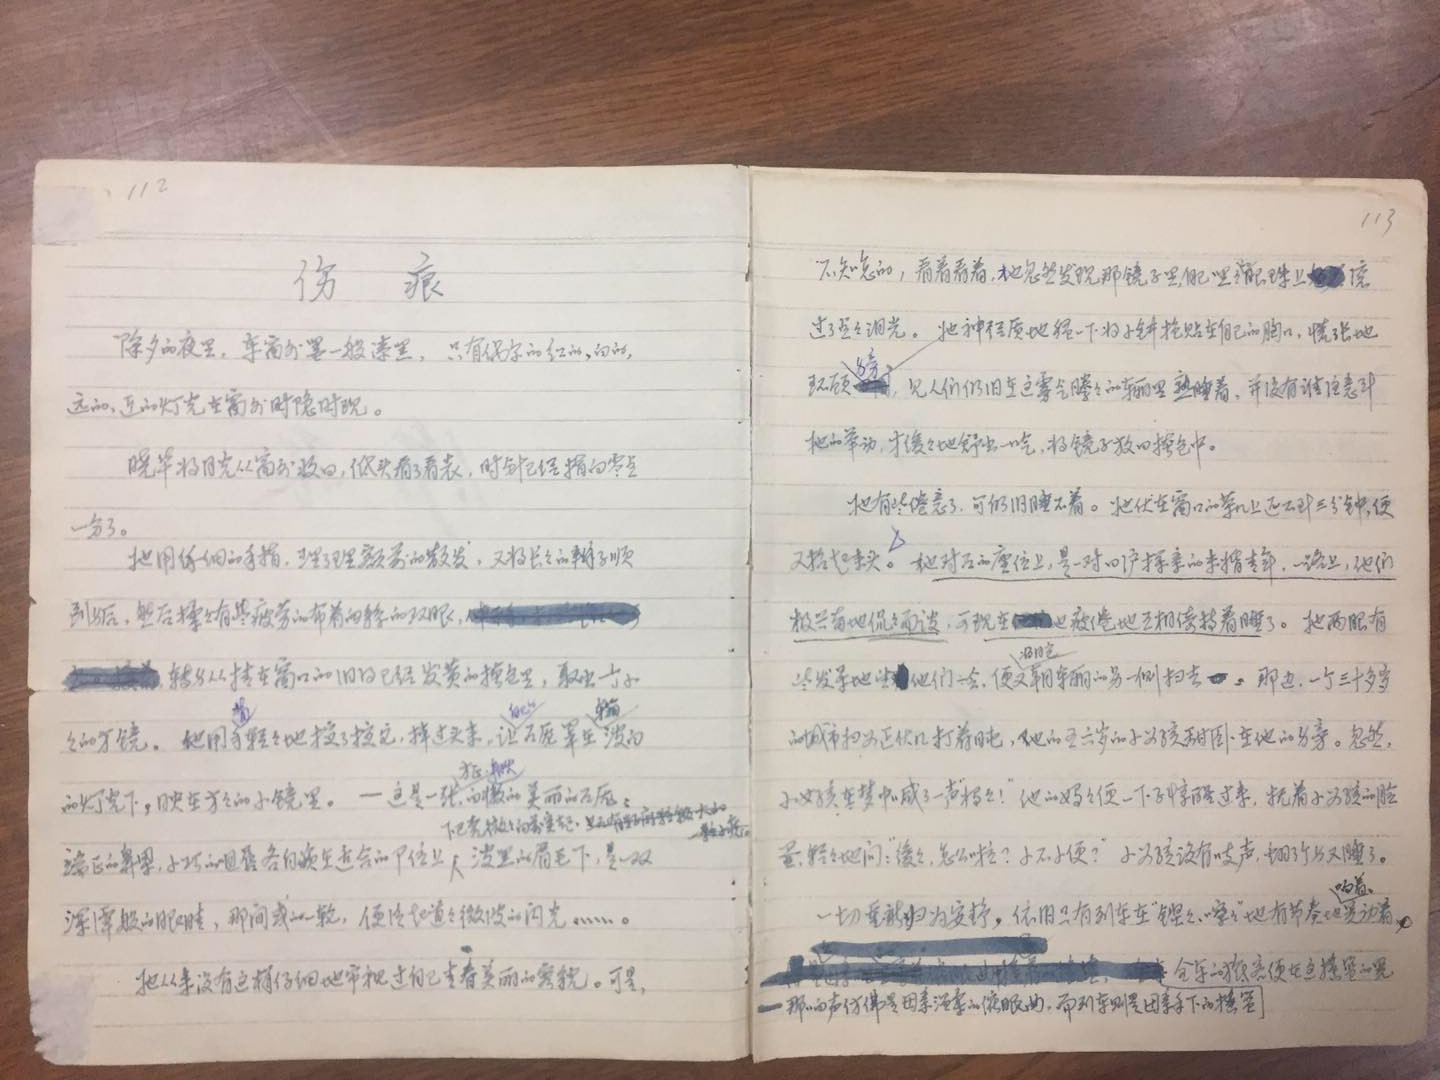 112
伤 痕
除夕的夜里，车窗外墨一般漆黑，只有偶尔的红的，白的，
远的，近的灯光在窗外时隐时现。
晓华将目光从窗外收回，低头看了看表，时针已经指向零点
一分了。
她用纤细的手指，理了理额前的散发，又将长长的辫子顺
到背后，然后揉了有些疲劳的布着血丝的双眼，
转身从挂在窗口的旧的已经发黄的挎包里，取出一个小
々的方镜。她用手背轻々地擦了擦它，掉过头来，让自己的面庞罩在车厢淡白
的灯光下，映在方々的小镜里。——这是一张方正，白嫩的美丽的面庞：
下巴
端正的鼻梁，小巧的嘴唇各自嵌在适合的部位上，淡黑的眉毛下，是一双
深潭般的眼睛，那间或的一转，便泛起道々微波的闪光……。
她从来没有这样仔细地审视过自己青春美丽的容貌。可是，
113
不知怎的，看着看着，她忽然发现那镜子里自己黑黑的眼珠上 滚
过了点々泪光。她神经质地猛一下将小镜抱贴在自己的胸口，慌张地
环顾身旁，见人们仍旧在这雾气腾々的车厢里熟睡着，并没有谁注意到
她的举动，才缓々地舒出一口气，将镜子放回挎包中。
她有些倦意了，可仍旧睡不着。她伏在窗口的茶几上还不到三分钟，便
又抬起来头。她对面的座位上，是一对回沪探亲的未婚青年，一路上，他们
极兴奋地侃々而谈，可现在也疲倦地互相倚持着睡了。她两眼有
些发呆地望他们一会，便又朝车厢的另一侧扫去。那边，一个三十多岁
的城市妇女正伏几打着盹，她的五六岁的小女孩甜卧在她的身旁。忽然，
小女孩在梦中喊了一声“妈々！”她的妈々便一下子惊醒过来，抚着小女孩的脸
蛋，轻々地问：“ 怎么啦？小不小便？”小女孩没有吱声，翻了个身又睡了。
一切重新归为安静，依旧只有列车在“铿々”，“ ”地有节奏地响着
全车的旅客便在这摇篮的晃
—那响声仿佛是母亲温柔的催眠曲，而列车则是母亲手下的摇篮